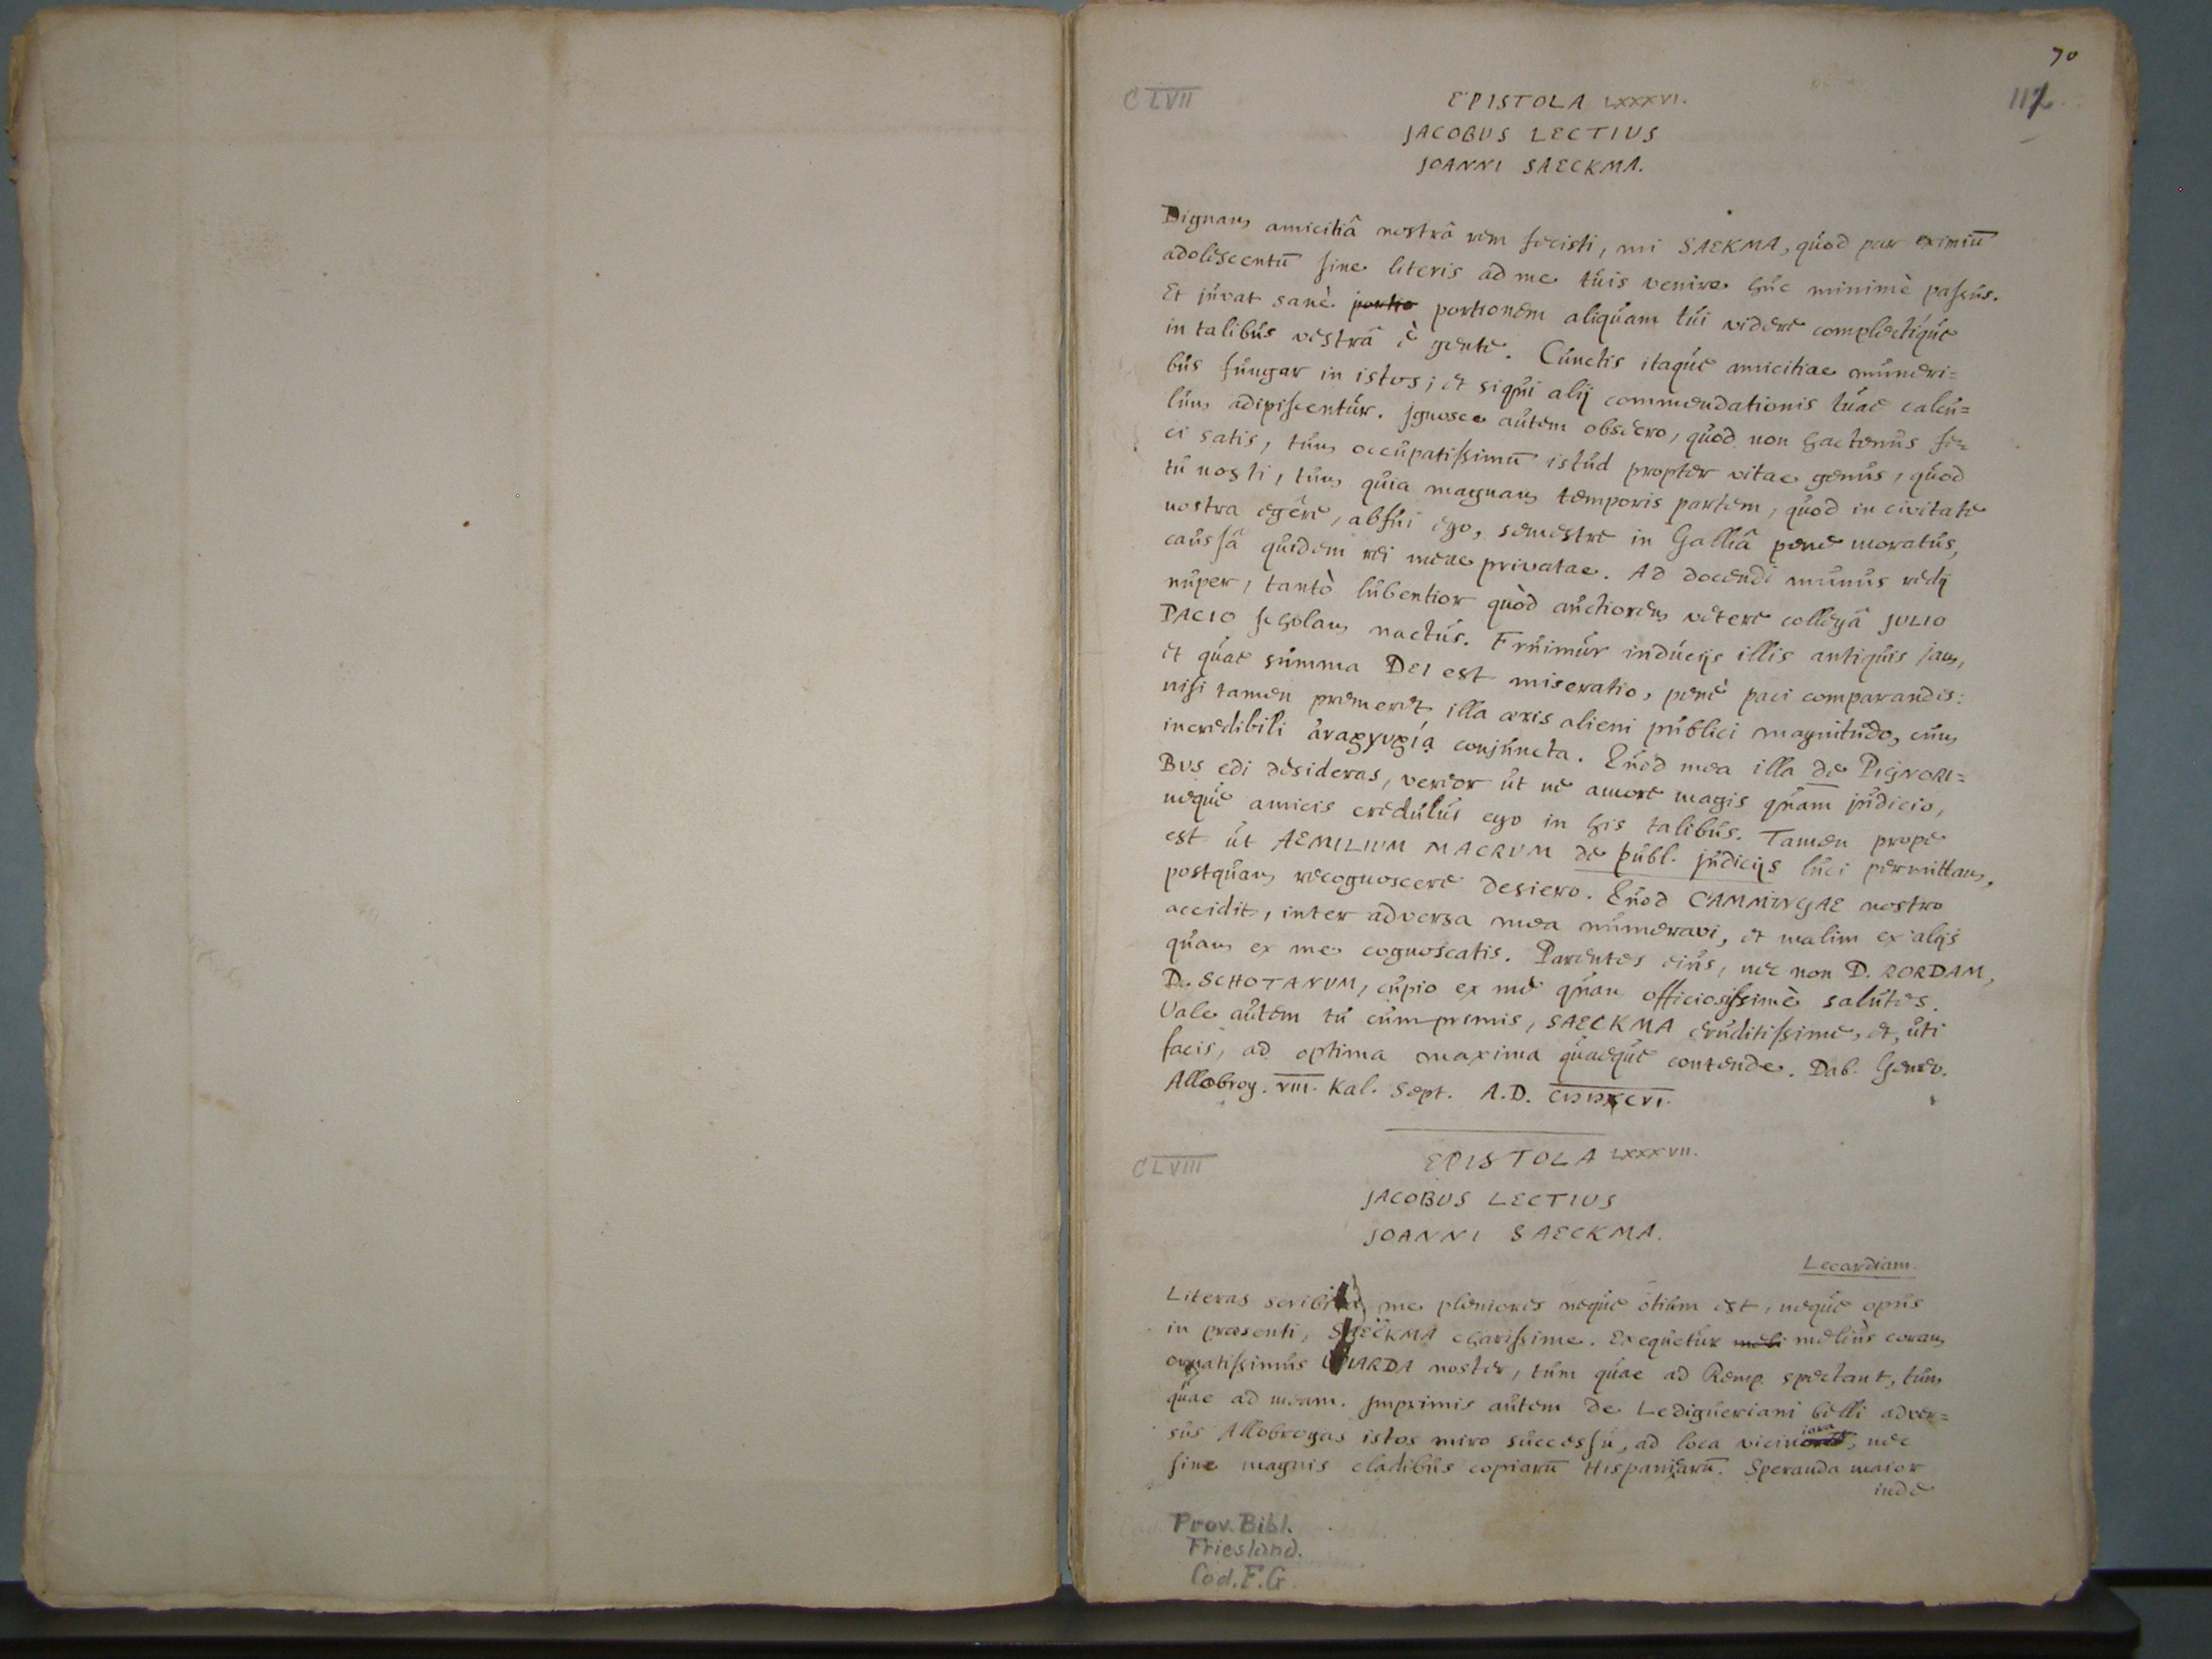 70
CLVII
EPISTOLA LXXXVI.
112
JACOBUS LECTIUS
JOANNI SAECKMA.
Dignam amicitiâ nostrâ rem fecisti, mi SAEKMA, quod par eximiū
adolescentū sine literis ad me tuis venire huc minimè passus.
Et juvat sanè portio portionem aliquam tui videre complectique
in talibus vestrâ è gente. Cunctis itaque amicitiae muneri=
bus fungar in istos; et siqui alij commendationis tuae calcu=
lum adipiscentur. Ignosce autem obsecro, quod non hactenus fe=
ci satis, tum occupatissimū istud propter vitae genus, quod
tu nosti, tum quia magnam temporis partem, quod in civitate
nostra egêre, abfui ego, semestre in Galliâ pene moratus,
caussâ quidem rei meae privatae. Ad docendi munus redij
nuper, tantò lubentior quòd auctiorem vetere collegâ JULIO
PACIO scholam nactus. Fruimur inducijs illis antiquis jam,
et quae summa DEI est miseratio, penè paci comparandis:
nisi tamen premeret illa aeris alieni publici magnitudo, cum
incredibili ἀναργυρίᾳ conjuncta. Quod mea illa de PIGNORI=
BUS edi desideras, vereor ut ne amore magis quam judicio,
neque amicis credulus ego in his talibus. Tamen prope
est ut AEMILIUM MACRUM de publ. judicijs luci permittam,
postquam recognoscere desiero. Quod CAMMINGAE nostro
accidit, inter adversa mea numeravi, et malim ex alijs
quam ex me cognoscatis. Parentes eius, nec non D. RORDAM,
D. SCHOTANUM, cupio ex me quam officiosissimè salutes.
Vale autem tu cumprimis, SAECKMA eruditissime, et, uti
facis, ad optima maxima quaeque contende. Dab. Genev.
Allobrog. VIII. Kal. Sept. A.D. CIƆIƆXCVI.
CLVIII
EPISTOLA LXXXVII.
JACOBUS LECTIUS
JOANNI SAECKMA.
Lecardiam.
Literas scribere me pleniores neque otium est, neque opus
in praesenti, SAECKMA charissime. Exequetur meli meliùs coram
ornatissimus WIARDA noster, tum quae ad Remp. spectant, tum
quae ad meam. Imprimis autem de Ledigueriani belli adver=
sus Allobrogas istos miro successu, ad loca viciniora, nec
sine magnis cladibus copiarū Hispanicarū. Speranda maior
inde
Prov. Bibl.
Friesland.
Cod. F.G.